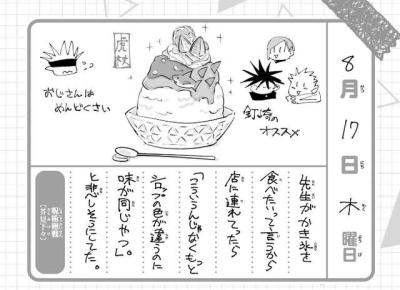 8月17日木曜日
虎杖
おじさんは
めんどくさい
釘崎の
オススメ
先生がかき氷を
食べたいって言うから
店に連れてったら
「こういうんじゃなくもっと
シロップの色が違うのに
味が同じやつ」
と悲しそうにしてた。
呪術廻戦
芥見下々